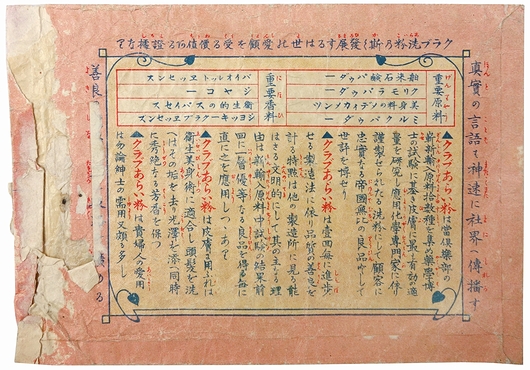 クラブ洗粉乃斯く發展するは世の愛顧を受る價値有る證據なり
真實の言語は神速に社界へ傳播す
重要原料
舶来石鹸パウダー
クリモラパウダー
美身料のメディカメンツ
ミルクパウダー
重要香料
バイオレットエッセンス
ジャコー
衛生的のスパイセス
ジョッキークラブエッセンス
▲クラブあらい粉は當倶樂部の
嶄新輸入原料拾数種を集め藥學博
士の試驗に基き皮膚に最も有効の適
量を研究し應用化學專門家に依り
謹製せられたる洗粉にして顧客に
忠實なる帝國無比の良品にして
世評を博せり
▲クラブあらい粉は壹回毎に進歩
せる製造法に依り品質の善良を
計る特點は他の製造所に見る能
はざる文明的にして其の主たる理
由は新輸入原料中試驗の結果前
回に一層優等なる良品を得る毎に
直に之を應用しつゝあり
▲クラブあらい粉は皮膚に用ふれば
衛生美身術に適合し頭髪を洗
へばその垢を去り光澤を添へ同時
に秀逸なる芳香を保つ
▲クラブあらい粉は貴婦人の愛用
は勿論紳士の需用又頗る多し
善良